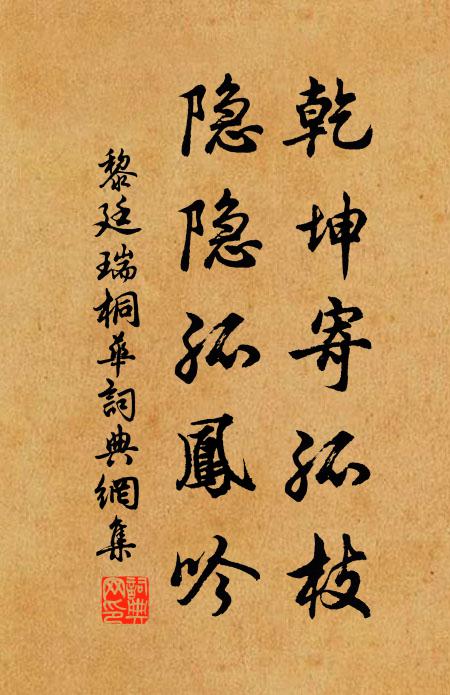 乾坤寄孤枝
隐隐孤鳳吟
黎廷瑞桐華詞典網集
詞典网印